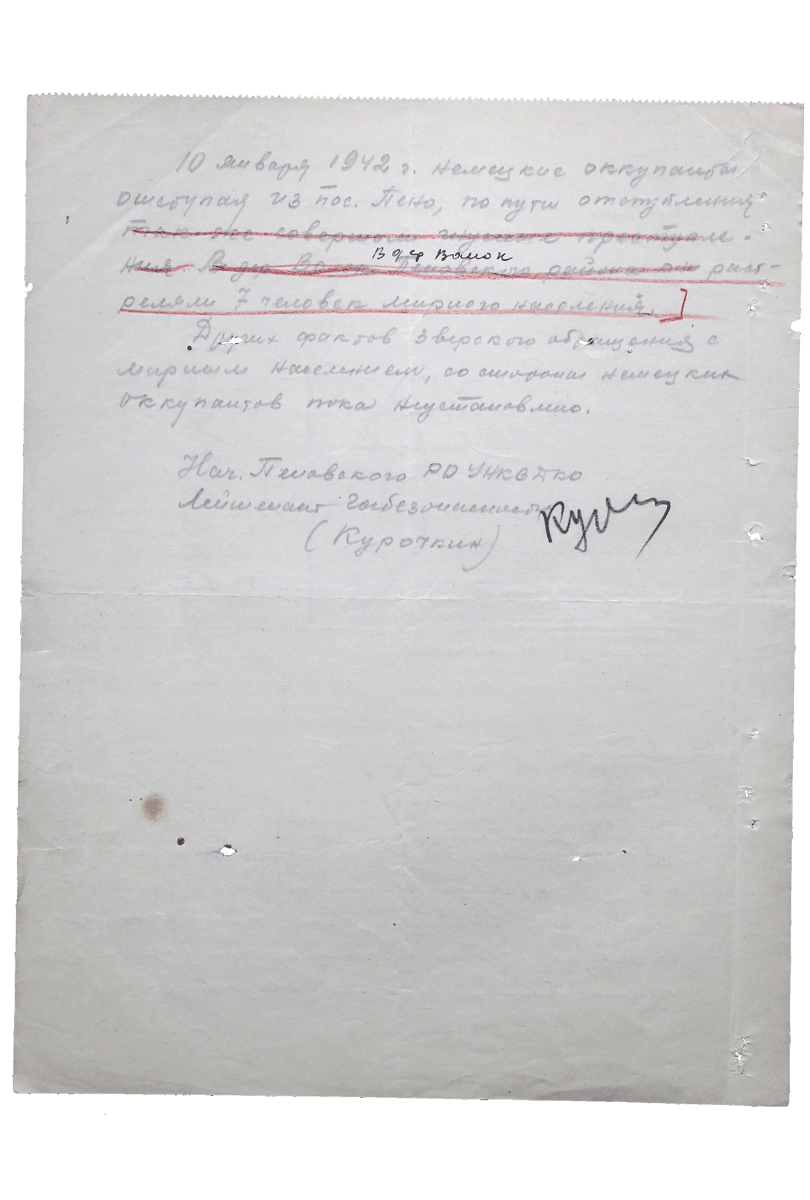 10 января 1942 г. немецкие оккупанты
отступая из пос. Пено, по пути отступления
так же совершили гнусные преступле-
В дер Волок
ния. В дер Волок Пеновского района он раст-
реляли 7 человек мирного населения.]
Других фактов зверского обращения с
мирным населением, со стороны немецких
оккупантов пока неустановлено.
Нач. Пеновского РО УНКВД КО
Лейтенант Госбезопасности
(Курочкин)